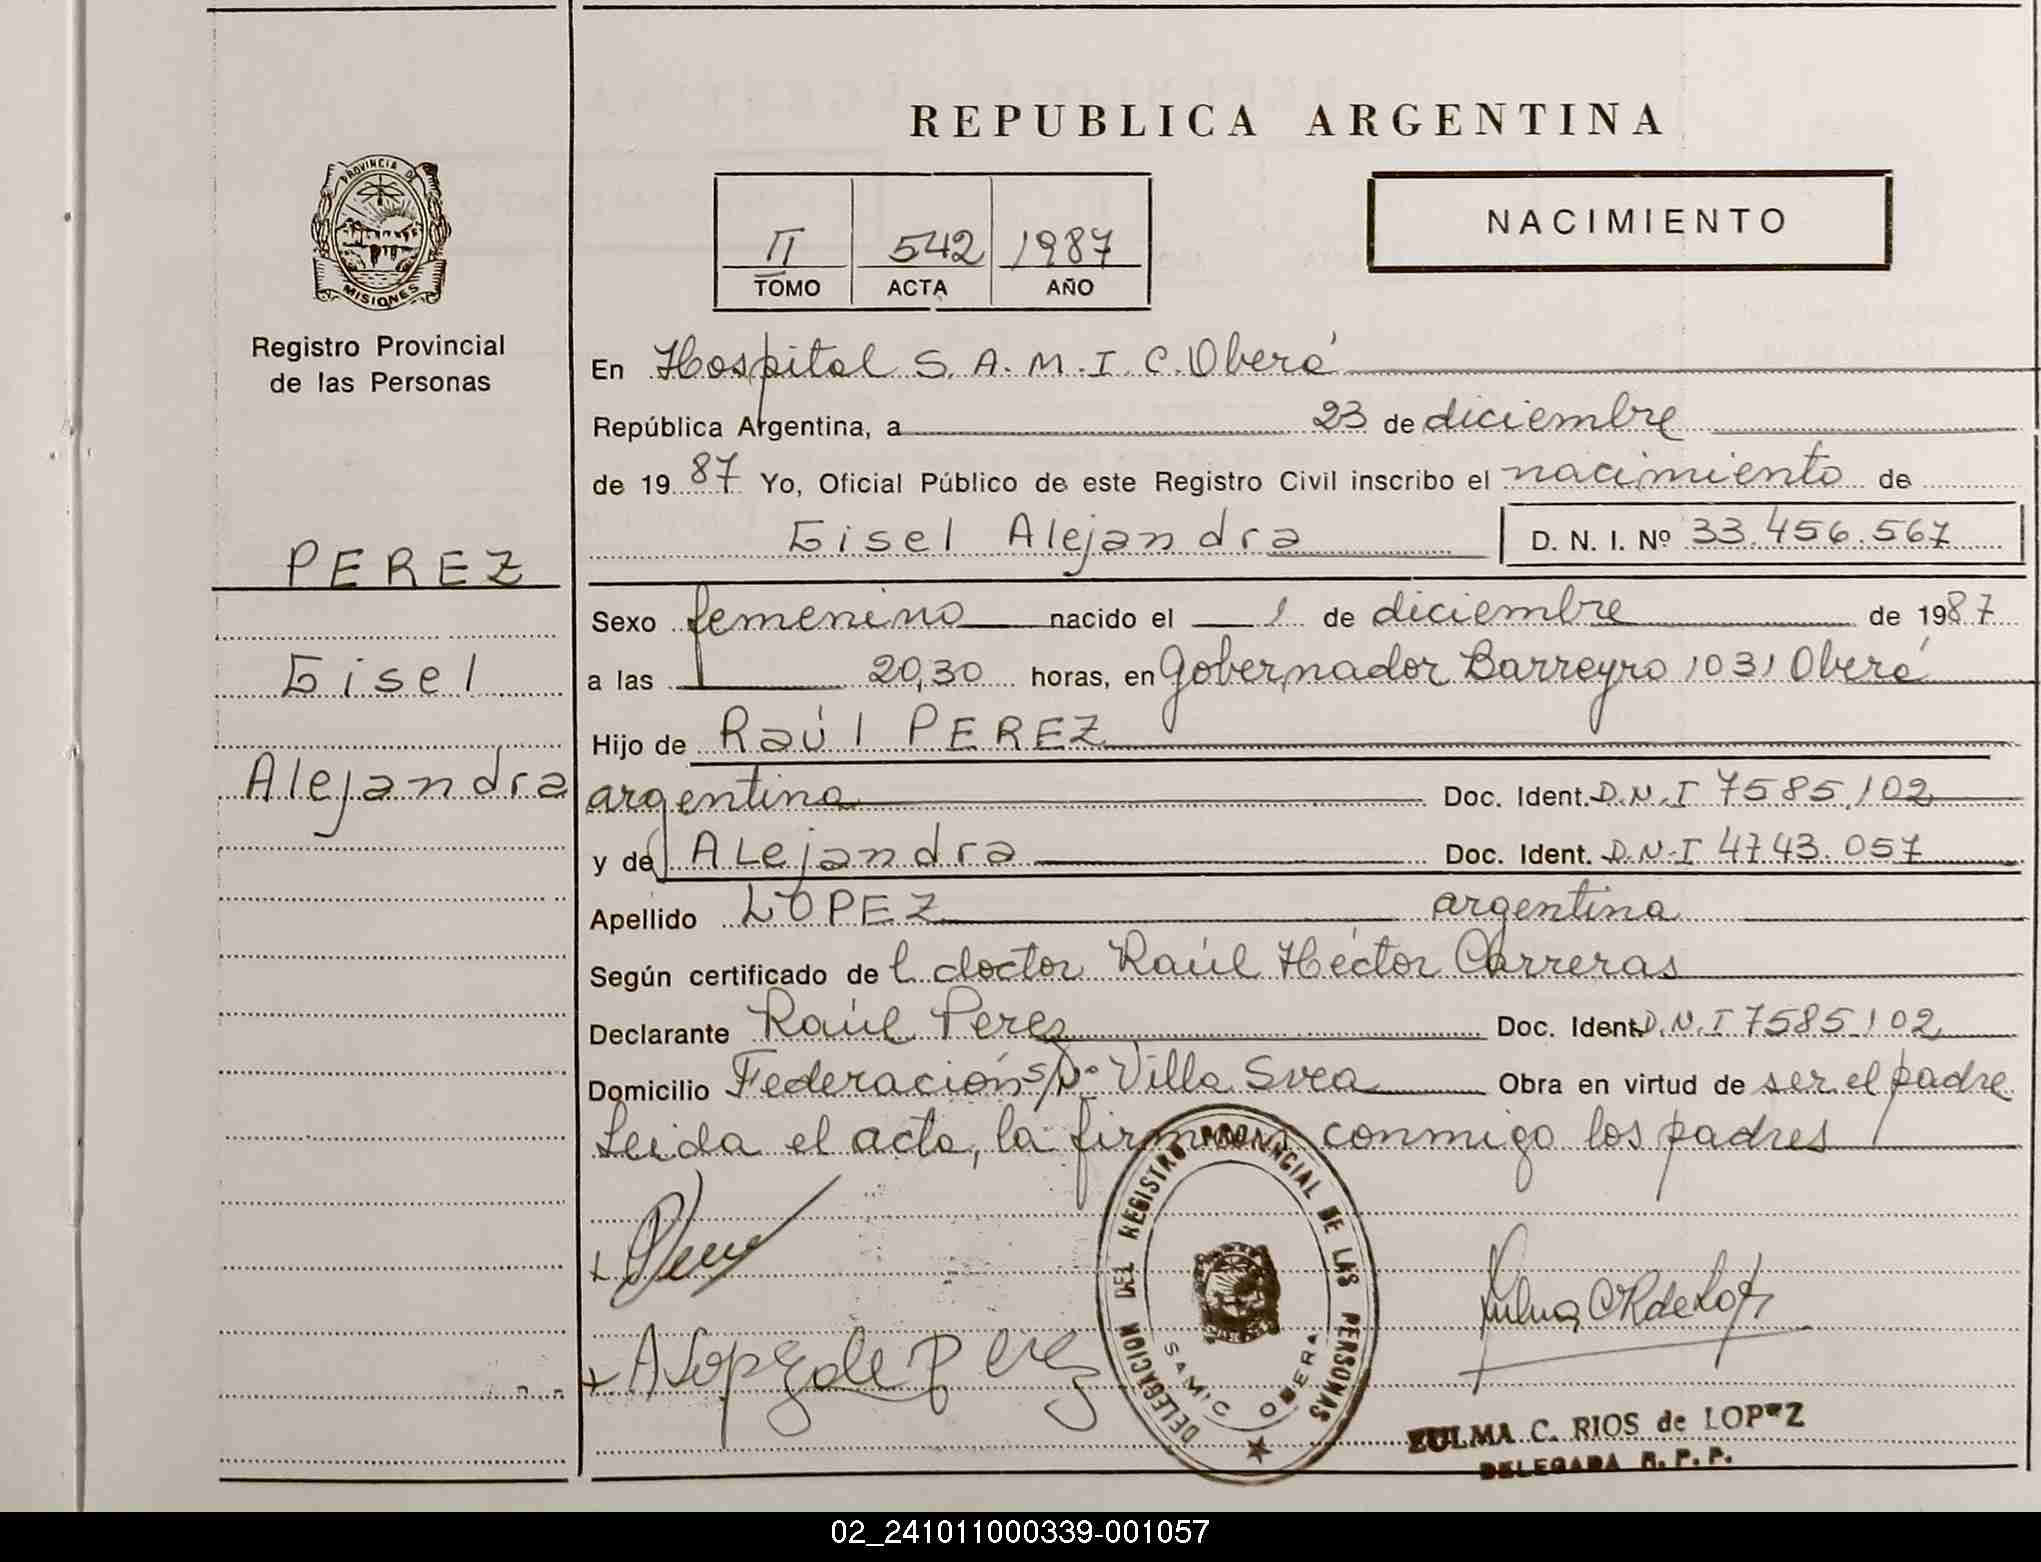 REPUBLICA ARGENTINA
PROVINCIA DE
MISIONES
Registro Provincial
de las Personas
II 542 1987
TOMO ACTA AÑO
NACIMIENTO
En Hospital S. A. M. I. C. Oberá
República Argentina, a 23 de diciembre
de 1987 Yo, Oficial Público de este Registro Civil inscribo el nacimiento de
Gisel Alejandra D. N. I. Nº 33.456.567
PEREZ
Gisel
Alejandra
Sexo femenino nacido el 1 de diciembre de 1987
a las 20,30 horas, en Gobernador Barreyro 1031 Oberá
Hijo de Raúl PEREZ
argentina Doc. Ident. D.N.I 7585.102
y de ALejandra Doc. Ident. D.N.I 4743.057
Apellido LOPEZ argentina
Según certificado de l doctor Raúl Héctor Carreras
Declarante Raúl Perez Doc. Ident. D.N.I 7585.102
Domicilio Federación s/nº Villa Svea Obra en virtud de ser el padre
Leida el acta, la firman conmigo los padres
DELEGACION DEL REGISTRO PROVINCIAL DE LAS PERSONAS
SAMIC OBERA
A Lopez de Perez
ZULMA C. RIOS de LOPEZ
DELEGADA R. P. P.
02_241011000339-001057